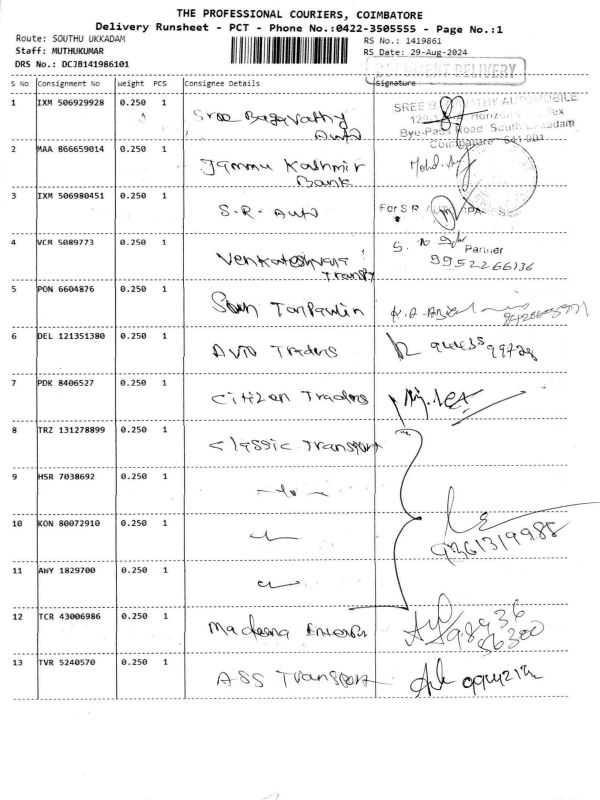 THE PROFESSIONAL COURIERS, COIMBATORE
Delivery Runsheet - PCT - Phone No.:0422-3505555 - Page No.:1
Route: SOUTHU UKKADAM
RS No.: 1419861
Staff: MUTHUKUMAR
RS Date: 29-Aug-2024
DRS No.: DCJB141986101
DOCUMENT DELIVERY
S No Consignment No Weight PCS Consignee Details Signature
1 IXM 506929928 0.250 1 Sree Bagavathy Auto
SREE B THY AUTOMOBILE
Horizon plex
Bye-Pass Road South Ukkadam
Coimbatore - 641 001
2 MAA 866659014 0.250 1 Jammu Kashmir Bank
Mohd.
3 IXM 506980451 0.250 1 S.R. Auto
For S R
4 VCM 5089773 0.250 1 Venkateshvara
Partner
9952266136
5 PON 6604876 0.250 1 Tarpaulin
6 DEL 121351380 0.250 1 Traders
7 PDK 8406527 0.250 1 Citizen Traders
8 TRZ 131278899 0.250 1 Classic Transport
9 HSR 7038692 0.250 1
10 KON 80072910 0.250 1
11 AWY 1829700 0.250 1
12 TCR 43006986 0.250 1 Madeena
13 TVR 5240570 0.250 1 ASS Transport